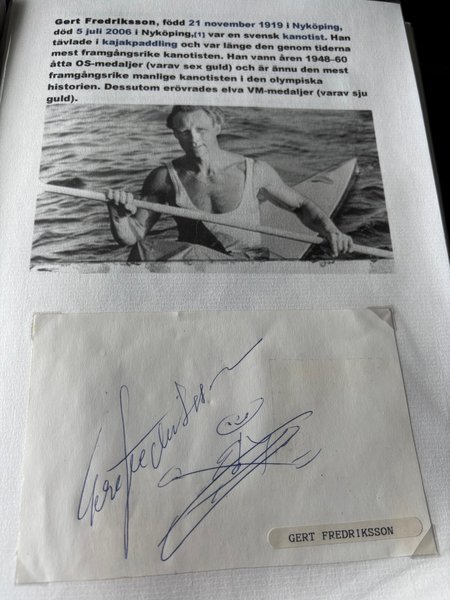 Gert Fredriksson, född 21 november 1919 i Nyköping,
död 5 juli 2006 i Nyköping,[1] var en svensk kanotist. Han
tävlade i kajakpaddling och var länge den genom tiderna
mest framgångsrike kanotisten. Han vann åren 1948-60
åtta OS-medaljer (varav sex guld) och är ännu den mest
framgångsrike manlige kanotisten i den olympiska
historien. Dessutom erövrades elva VM-medaljer (varav sju
guld).
Gert Fredriksson
GERT FREDRIKSSON